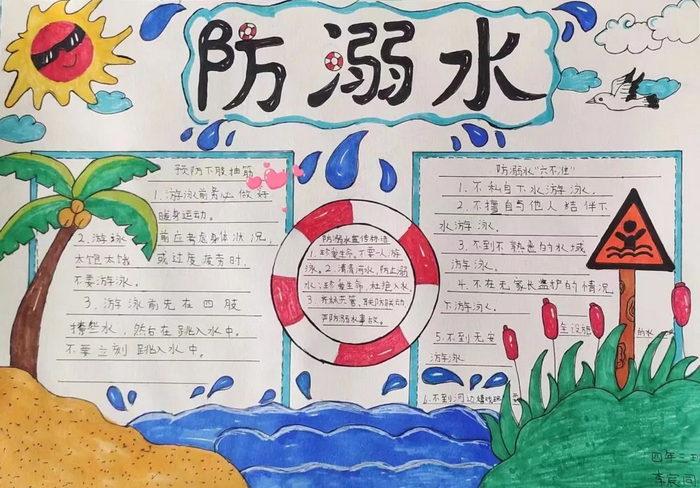 防溺水
预防下肢抽筋
1.游泳前务必做好
暖身运动。
2.游泳前应考虑身体状况,
太饱太饿或过度疲劳时,
不要游泳。
3.游泳前先在四肢
撩些水,然后在跳入水中。
不要立刻跳入水中。
防溺水宣传标语
1.珍爱生命,不要一人游
泳。2.清清河水,防止溺
水;珍爱生命,杜绝入水
3.齐抓共管,联防联动
严防溺水事故。
防溺水"六不准"
1.不私自下水游泳。
2.不擅自与他人结伴下
水游泳。
3.不到不熟悉的水域
游泳。
4.不在无家长监护的情况
下游泳。
5.不到无安全设施的水
游泳
6.不到河边嬉戏
四年二班